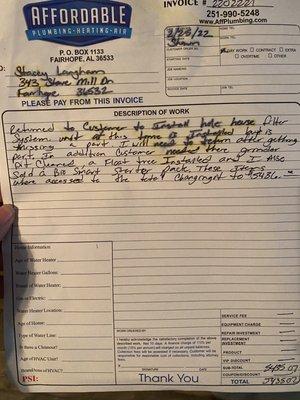 AFFORDABLE
PLUMBING-HEATING-AIR
INVOICE #
251-990-5248
www.AffPlumbing.com
P. O. BOX 1133
FAIRHOPE, AL 36533
2/25/22
Shawn
DAY WORK CONTRACT EXTRA
OVERTIME OTHER
Stacey Langham
343 Stone Mill Dr
Fairhope 36532
PLEASE PAY FROM THIS INVOICE
DESCRIPTION OF WORK
Returned to Customer to Install hole house filter
System unit at this time is Installed but is
missing a part I will need to return after getting
part. In addition Customer needed there grinder
Pit Cleaned a float tree Installed and I Also
Sold a Bio Smart Starter pack. These Items
where accessed to the total changing it to 5436.
Home Information
Age of Water Heater
Water Heater Gallons:
Brand of Water Heater:
Gas or Electric:
Water Heater Location:
Age of Home:
Type of Water Line:
Is there a Cleanout?
Age of HVAC Unit?
Brand/Area of HVAC?
PSI:
WORK ORDERED BY
I hereby acknowledge the satisfactory completion of the above
described work.
SIGNATURE
DATE
Thank You
SERVICE FEE
EQUIPMENT CHARGE
REPAIR INVESTMENT
REPLACEMENT
INVESTMENT
PRODUCT
VIP DISCOUNT
SUB-TOTAL 5435.07
COUPON/DISCOUNT
TOTAL 5435.07